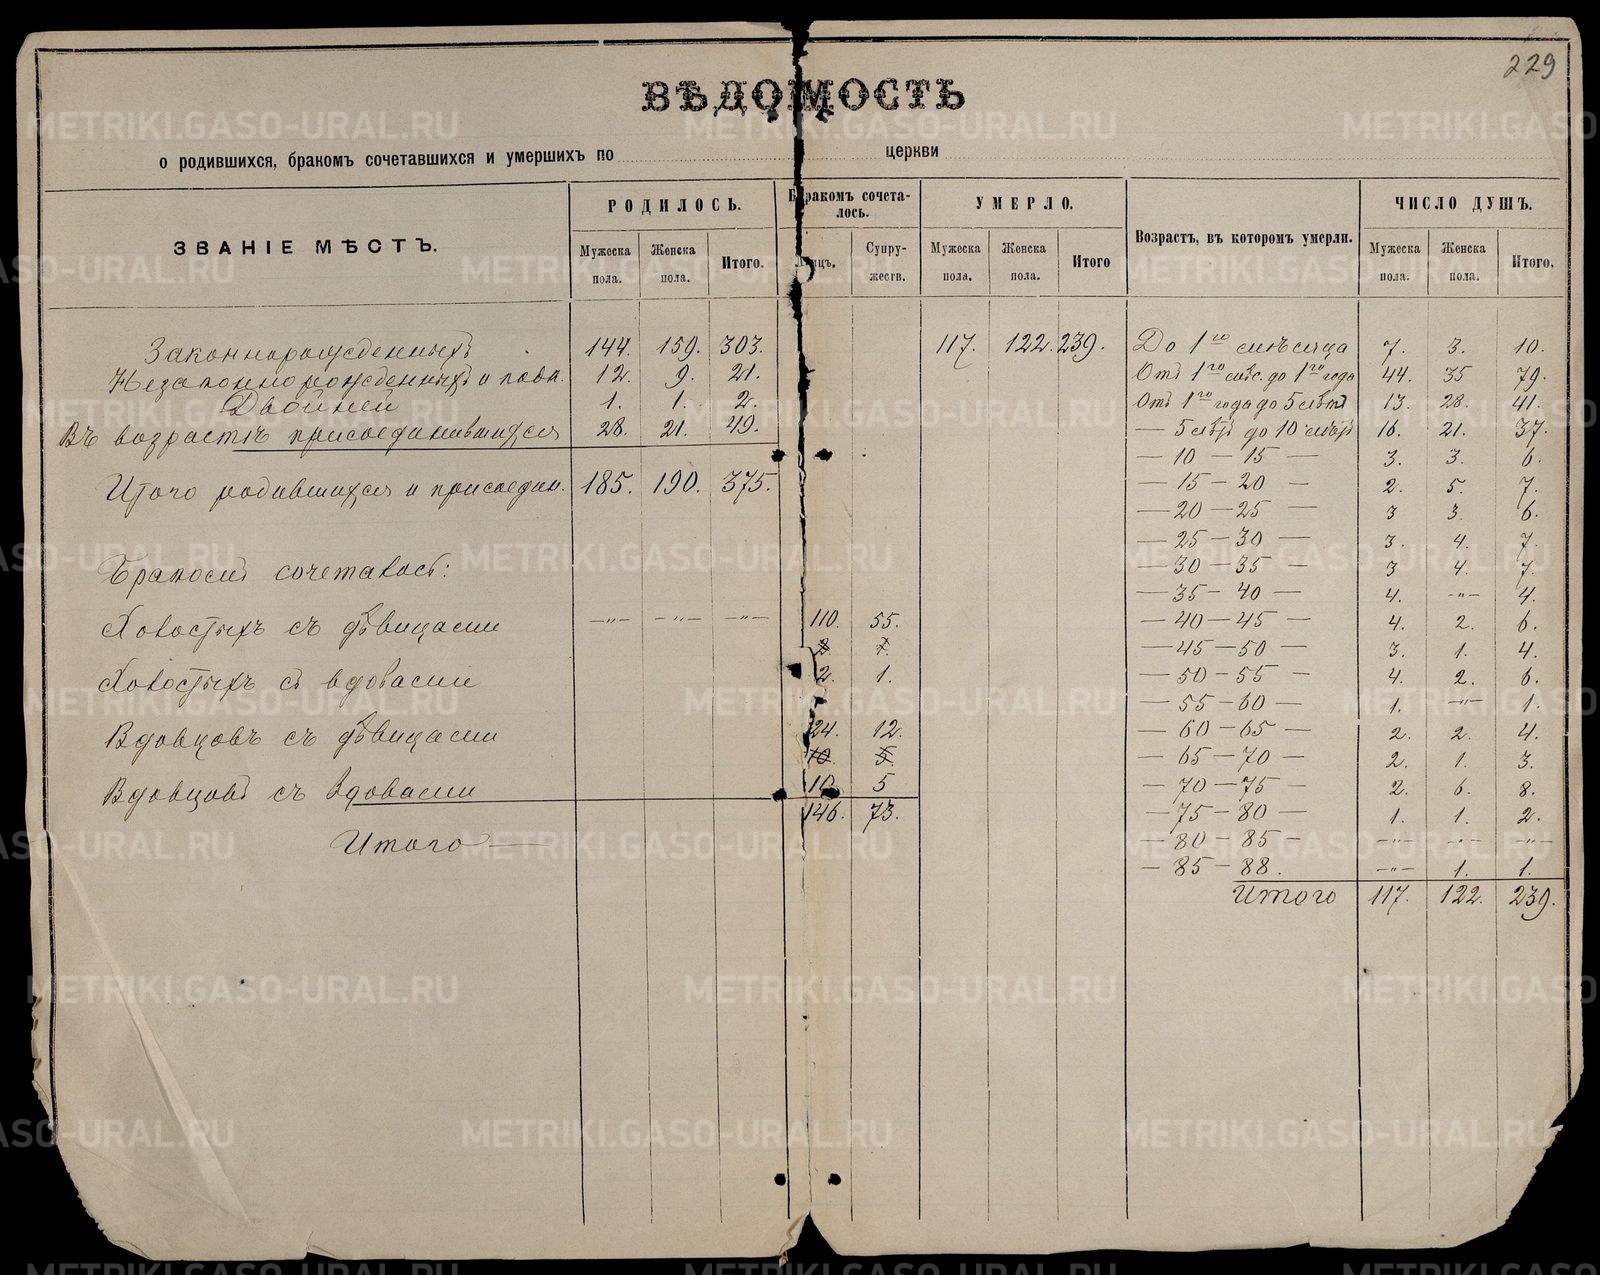 229
ВѢДОМОСТЬ
о родившихся, бракомъ сочетавшихся и умершихъ по церкви
ЗВАНІЕ МѢСТЪ. РОДИЛОСЬ. Бракомъ сочеталось. УМЕРЛО. Возрастъ, въ которомъ умерли. ЧИСЛО ДУШЪ.
Мужеска пола. Женска пола. Итого. Лицъ. Супружеств. Мужеска пола. Женска пола. Итого Мужеска пола. Женска пола. Итого.
Законнорожденныхъ 144. 159. 303. 117. 122. 239.
Незаконнорожденныхъ и подк. 12. 9. 21.
Двойней 1. 1. 2.
Въ возрастѣ присоединившихся 28. 21. 49.
Итого родившихся и присоедин. 185. 190. 375.
Бракомъ сочеталось:
Холостыхъ съ дѣвицами —"— —"— —"— 110. 55.
2. 1.
Холостыхъ съ вдовами 2. 1.
Вдовцовъ съ дѣвицами 24. 12.
10. 5.
Вдовцовъ съ вдовами 10. 5
Итого — 146. 73.
До 1го мѣсяца 7. 3. 10.
Отъ 1го мѣс. до 1го года 44. 35 79.
Отъ 1го года до 5 лѣтъ 13. 28. 41.
— 5 лѣтъ до 10 лѣтъ 16. 21. 37.
— 10 — 15 — 3. 3. 6.
— 15 — 20 — 2. 5. 7.
— 20 — 25 — 3 3. 6.
— 25 — 30 — 3. 4. 7
— 30 — 35 — 3 4. 7.
— 35 — 40 — 4. —"— 4.
— 40 — 45 — 4. 2. 6.
— 45 — 50 — 3. 1. 4.
— 50 — 55 — 4. 2. 6.
— 55 — 60 — 1. —"— 1.
— 60 — 65 — 2. 2. 4.
— 65 — 70 — 2. 1. 3.
— 70 — 75 — 2. 6. 8.
— 75 — 80 — 1. 1. 2.
— 80 — 85 — —"— —"— —"—
— 85 — 88. —"— 1. 1.
Итого 117. 122. 239.
METRIKI.GASO-URAL.RU